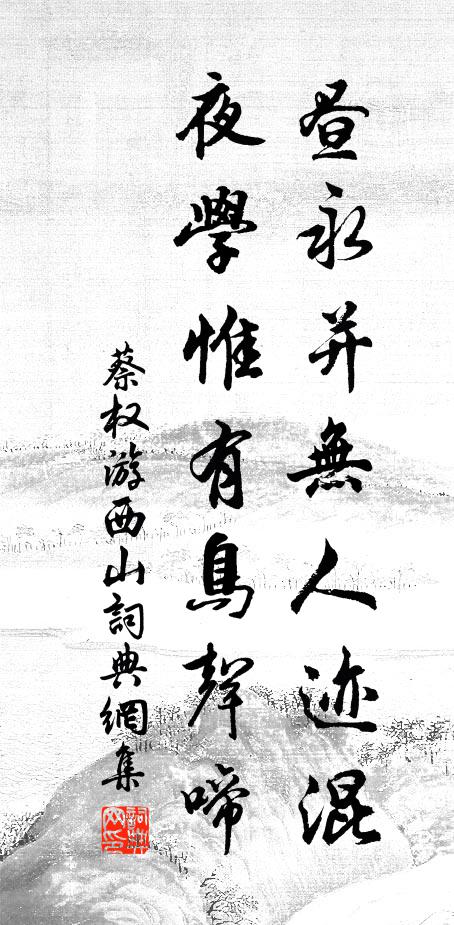 昼永并無人迹混
夜學惟有鳥聲啼
蔡权游西山詞典網集